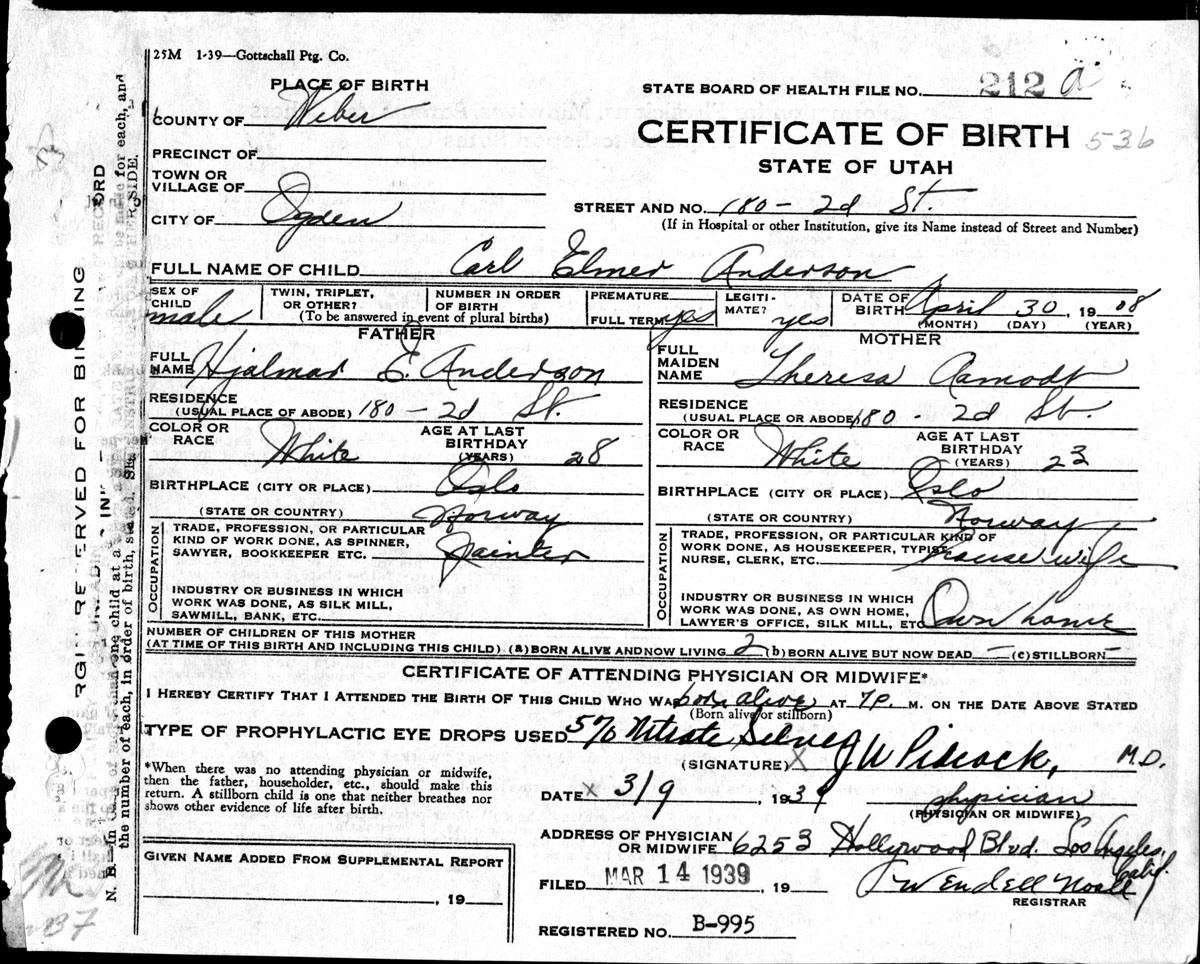 25M 1-39—Gottschall Ptg. Co.
PLACE OF BIRTH
STATE BOARD OF HEALTH FILE NO. 212 a
COUNTY OF Weber
CERTIFICATE OF BIRTH 536
PRECINCT OF
STATE OF UTAH
TOWN OR
VILLAGE OF
CITY OF Ogden
STREET AND NO. 180 - 2d St.
(If in Hospital or other Institution, give its Name instead of Street and Number)
FULL NAME OF CHILD Carl Elmer Anderson
SEX OF
CHILD male
TWIN, TRIPLET,
OR OTHER?
NUMBER IN ORDER
OF BIRTH
(To be answered in event of plural births)
PREMATURE
FULL TERM yes
LEGITI-
MATE? yes
DATE OF
BIRTH April 30, 1908
(MONTH) (DAY) (YEAR)
FATHER
FULL
NAME Hjalmar E. Anderson
RESIDENCE
(USUAL PLACE OF ABODE) 180 - 2d St.
COLOR OR
RACE White
AGE AT LAST
BIRTHDAY
(YEARS) 28
BIRTHPLACE (CITY OR PLACE) Oslo
(STATE OR COUNTRY) Norway
OCCUPATION
TRADE, PROFESSION, OR PARTICULAR
KIND OF WORK DONE, AS SPINNER,
SAWYER, BOOKKEEPER ETC. Painter
INDUSTRY OR BUSINESS IN WHICH
WORK WAS DONE, AS SILK MILL,
SAWMILL, BANK, ETC.
MOTHER
FULL
MAIDEN
NAME Theresa Aamodt
RESIDENCE
(USUAL PLACE OR ABODE) 180 - 2d St.
COLOR OR
RACE White
AGE AT LAST
BIRTHDAY
(YEARS) 23
BIRTHPLACE (CITY OR PLACE) Oslo
(STATE OR COUNTRY) Norway
OCCUPATION
TRADE, PROFESSION, OR PARTICULAR KIND OF
WORK DONE, AS HOUSEKEEPER, TYPIST,
NURSE, CLERK, ETC. housewife
INDUSTRY OR BUSINESS IN WHICH
WORK WAS DONE, AS OWN HOME,
LAWYER'S OFFICE, SILK MILL, ETC Own home
NUMBER OF CHILDREN OF THIS MOTHER
(AT TIME OF THIS BIRTH AND INCLUDING THIS CHILD) (a) BORN ALIVE AND NOW LIVING 2 (b) BORN ALIVE BUT NOW DEAD — (c) STILLBORN —
CERTIFICATE OF ATTENDING PHYSICIAN OR MIDWIFE*
I HEREBY CERTIFY THAT I ATTENDED THE BIRTH OF THIS CHILD WHO WAS born alive AT 7P. M. ON THE DATE ABOVE STATED
(Born alive or stillborn)
TYPE OF PROPHYLACTIC EYE DROPS USED 5% Nitrate Silver
(SIGNATURE) X J W Pidcock, M.D.
*When there was no attending physician or midwife,
then the father, householder, etc., should make this
return. A stillborn child is one that neither breathes nor
shows other evidence of life after birth.
DATE x 3/9, 1939 physician
(PHYSICIAN OR MIDWIFE)
ADDRESS OF PHYSICIAN
OR MIDWIFE 6253 Hollywood Blvd. Los Angeles, Calif.
GIVEN NAME ADDED FROM SUPPLEMENTAL REPORT
, 19
FILED MAR 14 1939, 19
Wendell Noall
REGISTRAR
REGISTERED NO. B-995